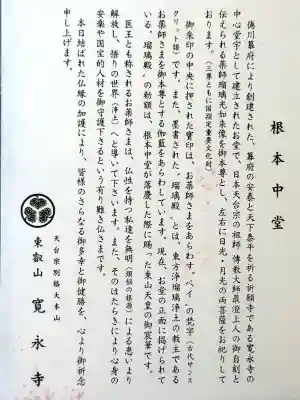 根本中堂
徳川幕府により創建された、幕府の安泰と天下泰平を祈る祈願寺である寛永寺の
中心堂宇として建立されたお堂で、日本天台宗の祖師、傳教大師最澄上人の御自刻と
伝えられる薬師瑠璃光如来像を御本尊とし、左右に日光・月光の両菩薩をお祀りして
おります。（三尊ともに国指定重要文化財）
御朱印の中央に押された寶印は、お薬師さまをあらわす〝ベイ〟の梵字（古代サンス
クリット語）です。また、墨書された〝瑠璃殿〟とは、東方浄瑠璃浄土の教主である
お薬師さまを御本尊とする伽藍をあらわしています。現在、お堂の正面に掲げられて
いる〝瑠璃殿〟の勅額は、根本中堂が落慶した際に賜った東山天皇の御宸筆です。
医王とも称されるお薬師さまは、仏性を持つ私達を無明（煩悩の根源）による患いより
解放し、悟りの世界（浄土）へと導いて下さいます。また、そのはたらきにより心身の
安楽や国宝的人材を御守護下さるという有り難き仏さまです。
本日結ばれた仏縁の加護により、皆様のさらなる御多幸と御健勝を、心より御祈念
申し上げます。
天台宗別格大本山
東叡山 寛永寺